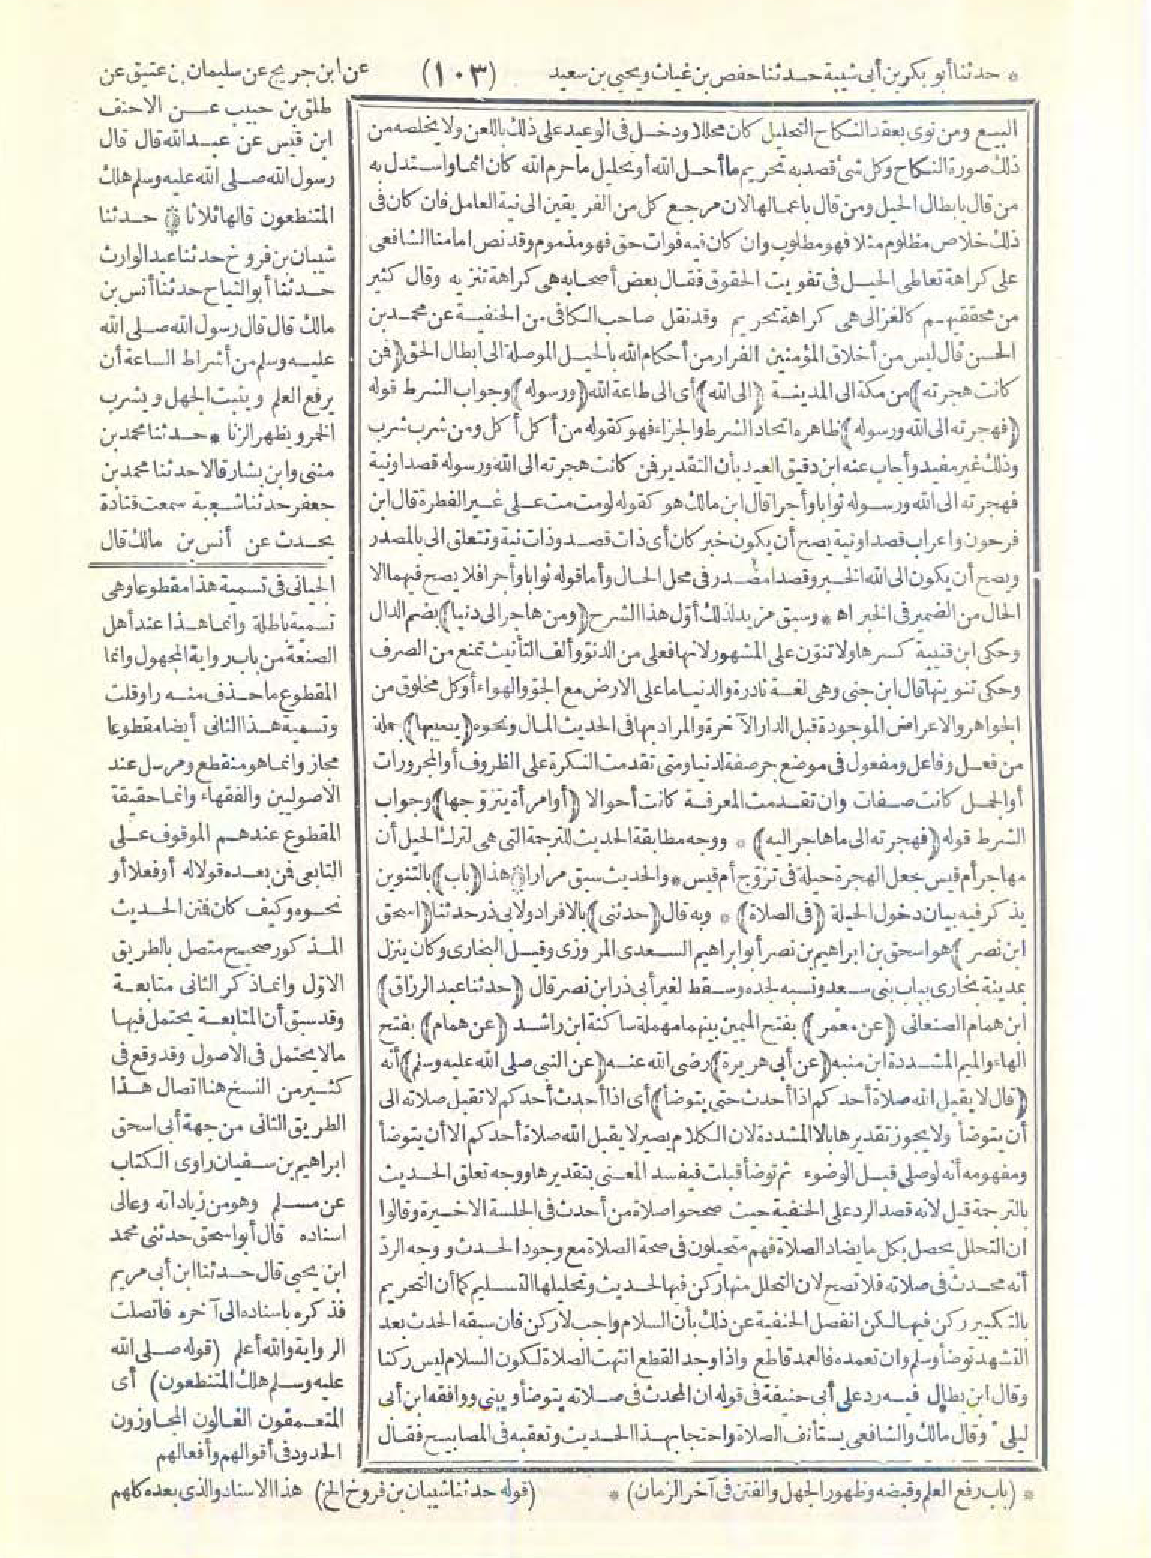 * حدثنا أبو بكر بن أبي شيبة حدثنا حفص بن غياث ويحيى بن سعيد (١٠٣) عن ابن جريج عن سليمان بن عتيق عن
البيع ومن نوى بعقد النكاح التحليل كان محللا ودخل فى الوعيد على ذلك باللعن ولا يخلصه من
ذلك صورة النكاح وكل شئ قصد به تحريم ما أحل الله أو تحليل ما حرم الله كان اثما واستدل به
من قال بابطال الحيل ومن قال باعمالها لان مرجع كل من الفريقين الى نية العامل فان كان فى
ذلك خلاص مظلوم مثلا فهو مطلوب وان كان فيه فوات حق فهو مذموم وقد نص امامنا الشافعى
على كراهة تعاطى الحيل فى تفويت الحقوق فقال بعض أصحابه هى كراهة تنزيه وقال كثير
من محققيهم كالغزالى هى كراهة تحريم وقد نقل صاحب الكافى من الحنفية عن محمد بن
الحسن قال ليس من أخلاق المؤمنين الفرار من أحكام الله بالحيل الموصلة الى ابطال الحق (فمن
كانت هجرته) من مكة الى المدينة (الى الله) أى الى طاعة الله (ورسوله) وجواب الشرط قوله
(فهجرته الى الله ورسوله) ظاهره اتحاد الشرط والجزاء فهو كقوله من أكل أكل ومن شرب شرب
وذلك غير مفيد وأجاب عنه ابن دقيق العيد بأن التقدير فمن كانت هجرته الى الله ورسوله قصدا ونية
فهجرته الى الله ورسوله ثوابا وأجرا قال ابن مالك هو كقوله لو مت مت على غير الفطرة قال ابن
فرحون واعراب قصدا ونية يصح أن يكون خبر كان أى ذات قصد وذات نية وتتعلق الى بالمصدر
ويصح أن يكون الى الله الخبر وقصدا مصدر فى محل الحال وأما قوله ثوابا وأجرا فلا يصح فيهما الا
الحال من الضمير فى الخبر اه * وسبق مزيد لذلك أول هذا الشرح (ومن هاجر الى دنيا) بضم الدال
وحكى ابن قتيبة كسرها ولا تنون على المشهور لانها فعلى من الدنو وألف التأنيث تمنع من الصرف
وحكى تنوينها قال ابن جنى وهى لغة نادرة والدنيا ما على الارض مع الجو والهواء أو كل مخلوق من
الجواهر والاعراض الموجودة قبل الدار الآخرة والمراد بها فى الحديث المال ونحوه (يصيبها) جملة
من فعل وفاعل ومفعول فى موضع جر صفة لدنيا ومتى تقدمت النكرة على الظروف أو المجرورات
أو الجمل كانت صفات وان تقدمت المعرفة كانت أحوالا (أو امرأة يتزوجها) وجواب
الشرط قوله (فهجرته الى ما هاجر اليه) * ووجه مطابقة الحديث للترجمة التى هى لترك الحيل أن
مهاجر أم قيس جعل الهجرة حيلة فى تزوج أم قيس * والحديث سبق مرارا هذا (باب) بالتنوين
يذكر فيه بيان دخول الحيلة (فى الصلاة) * وبه قال (حدثنى) بالافراد ولابى ذر حدثنا (اسحق
ابن نصر) هو اسحق بن ابراهيم بن نصر أبو ابراهيم السعدى المروزى وقيل البخارى وكان ينزل
بمدينة بخارى بباب بنى سعد ونسبه لجده وسقط لغير أبى ذر ابن نصر قال (حدثنا عبد الرزاق)
ابن همام الصنعانى (عن معمر) بفتح الميمين بينهما مهملة ساكنة ابن راشد (عن همام) بفتح
الهاء والميم المشددة ابن منبه (عن أبى هريرة) رضى الله عنه (عن النبى صلى الله عليه وسلم) أنه
(قال لا يقبل الله صلاة أحدكم اذا أحدث حتى يتوضأ) أى اذا أحدث أحدكم لا تقبل صلاته الى
أن يتوضأ ولا يجوز تقديرها بالا المشددة لان الكلام يصير لا يقبل الله صلاة أحدكم الا أن يتوضأ
ومفهومه أنه لو صلى قبل الوضوء ثم توضأ قبلت فيفسد المعنى بتقديرها ووجه تعلق الحديث
بالترجمة قيل لانه قصد الرد على الحنفية حيث صححوا صلاة من أحدث فى الجلسة الاخيرة وقالوا
ان التحلل يحصل بكل ما يضاد الصلاة فهم متحيلون فى صحة الصلاة مع وجود الحدث ووجه الرد
أنه محدث فى صلاته فلا تصح لان التحلل منها ركن فيها لحديث وتحليلها التسليم كما أن التحريم
بالتكبير ركن فيها لكن انفصل الحنفية عن ذلك بأن السلام واجب لا ركن فان سبقه الحدث بعد
التشهد توضأ وسلم وان تعمده فالعمد قاطع واذا وجد القطع انتهت الصلاة لكون السلام ليس ركنا
وقال ابن بطال فيه رد على أبى حنيفة فى قوله ان المحدث فى صلاته يتوضأ ويبنى ووافقه ابن أبى
ليلى وقال مالك والشافعى يستأنف الصلاة واحتجا بهذا الحديث وتعقبه فى المصابيح فقال
طلق بن حبيب عن الاحنف
ابن قيس عن عبد الله قال قال
رسول الله صلى الله عليه وسلم هلك
المتنطعون قالها ثلاثا حدثنا
شيبان بن فروخ حدثنا عبد الوارث
حدثنا أبو التياح حدثنا أنس بن
مالك قال قال رسول الله صلى الله
عليه وسلم من أشراط الساعة أن
يرفع العلم ويثبت الجهل ويشرب
الخمر ويظهر الزنا * حدثنا محمد بن
مثنى وابن بشار قالا حدثنا محمد بن
جعفر حدثنا شعبة سمعت قتادة
يحدث عن أنس بن مالك قال
الجيانى فى تسمية هذا مقطوعا وهى
تسمية باطلة وانما هذا عند أهل
الصنعة من باب رواية المجهول وانما
المقطوع ما حذف منه راو قلت
وتسمية هذا الثانى أيضا مقطوعا
مجاز وانما هو منقطع ومرسل عند
الاصوليين والفقهاء وانما حقيقة
المقطوع عندهم الموقوف على
التابعى فمن بعده قولا له أو فعلا أو
نحوه وكيف كان فمتن الحديث
المذكور صحيح متصل بالطريق
الاول وانما ذكر الثانى متابعة
وقد سبق أن المتابعة يحتمل فيها
ما لا يحتمل فى الاصول وقد وقع فى
كثير من النسخ هنا اتصال هذا
الطريق الثانى من جهة أبى اسحق
ابراهيم بن سفيان راوى الكتاب
عن مسلم وهو من زياداته وعالى
اسناده قال أبو اسحق حدثنى محمد
ابن يحيى قال حدثنا ابن أبى مريم
فذكره باسناده الى آخره فاتصلت
الرواية والله أعلم (قوله صلى الله
عليه وسلم هلك المتنطعون) أى
المتعمقون الغالون المجاوزون
الحدود فى أقوالهم وأفعالهم
* (باب رفع العلم وقبضه وظهور الجهل والفتن فى آخر الزمان) * (قوله حدثنا شيبان بن فروخ الخ) هذا الاسناد والذى بعده كلهم